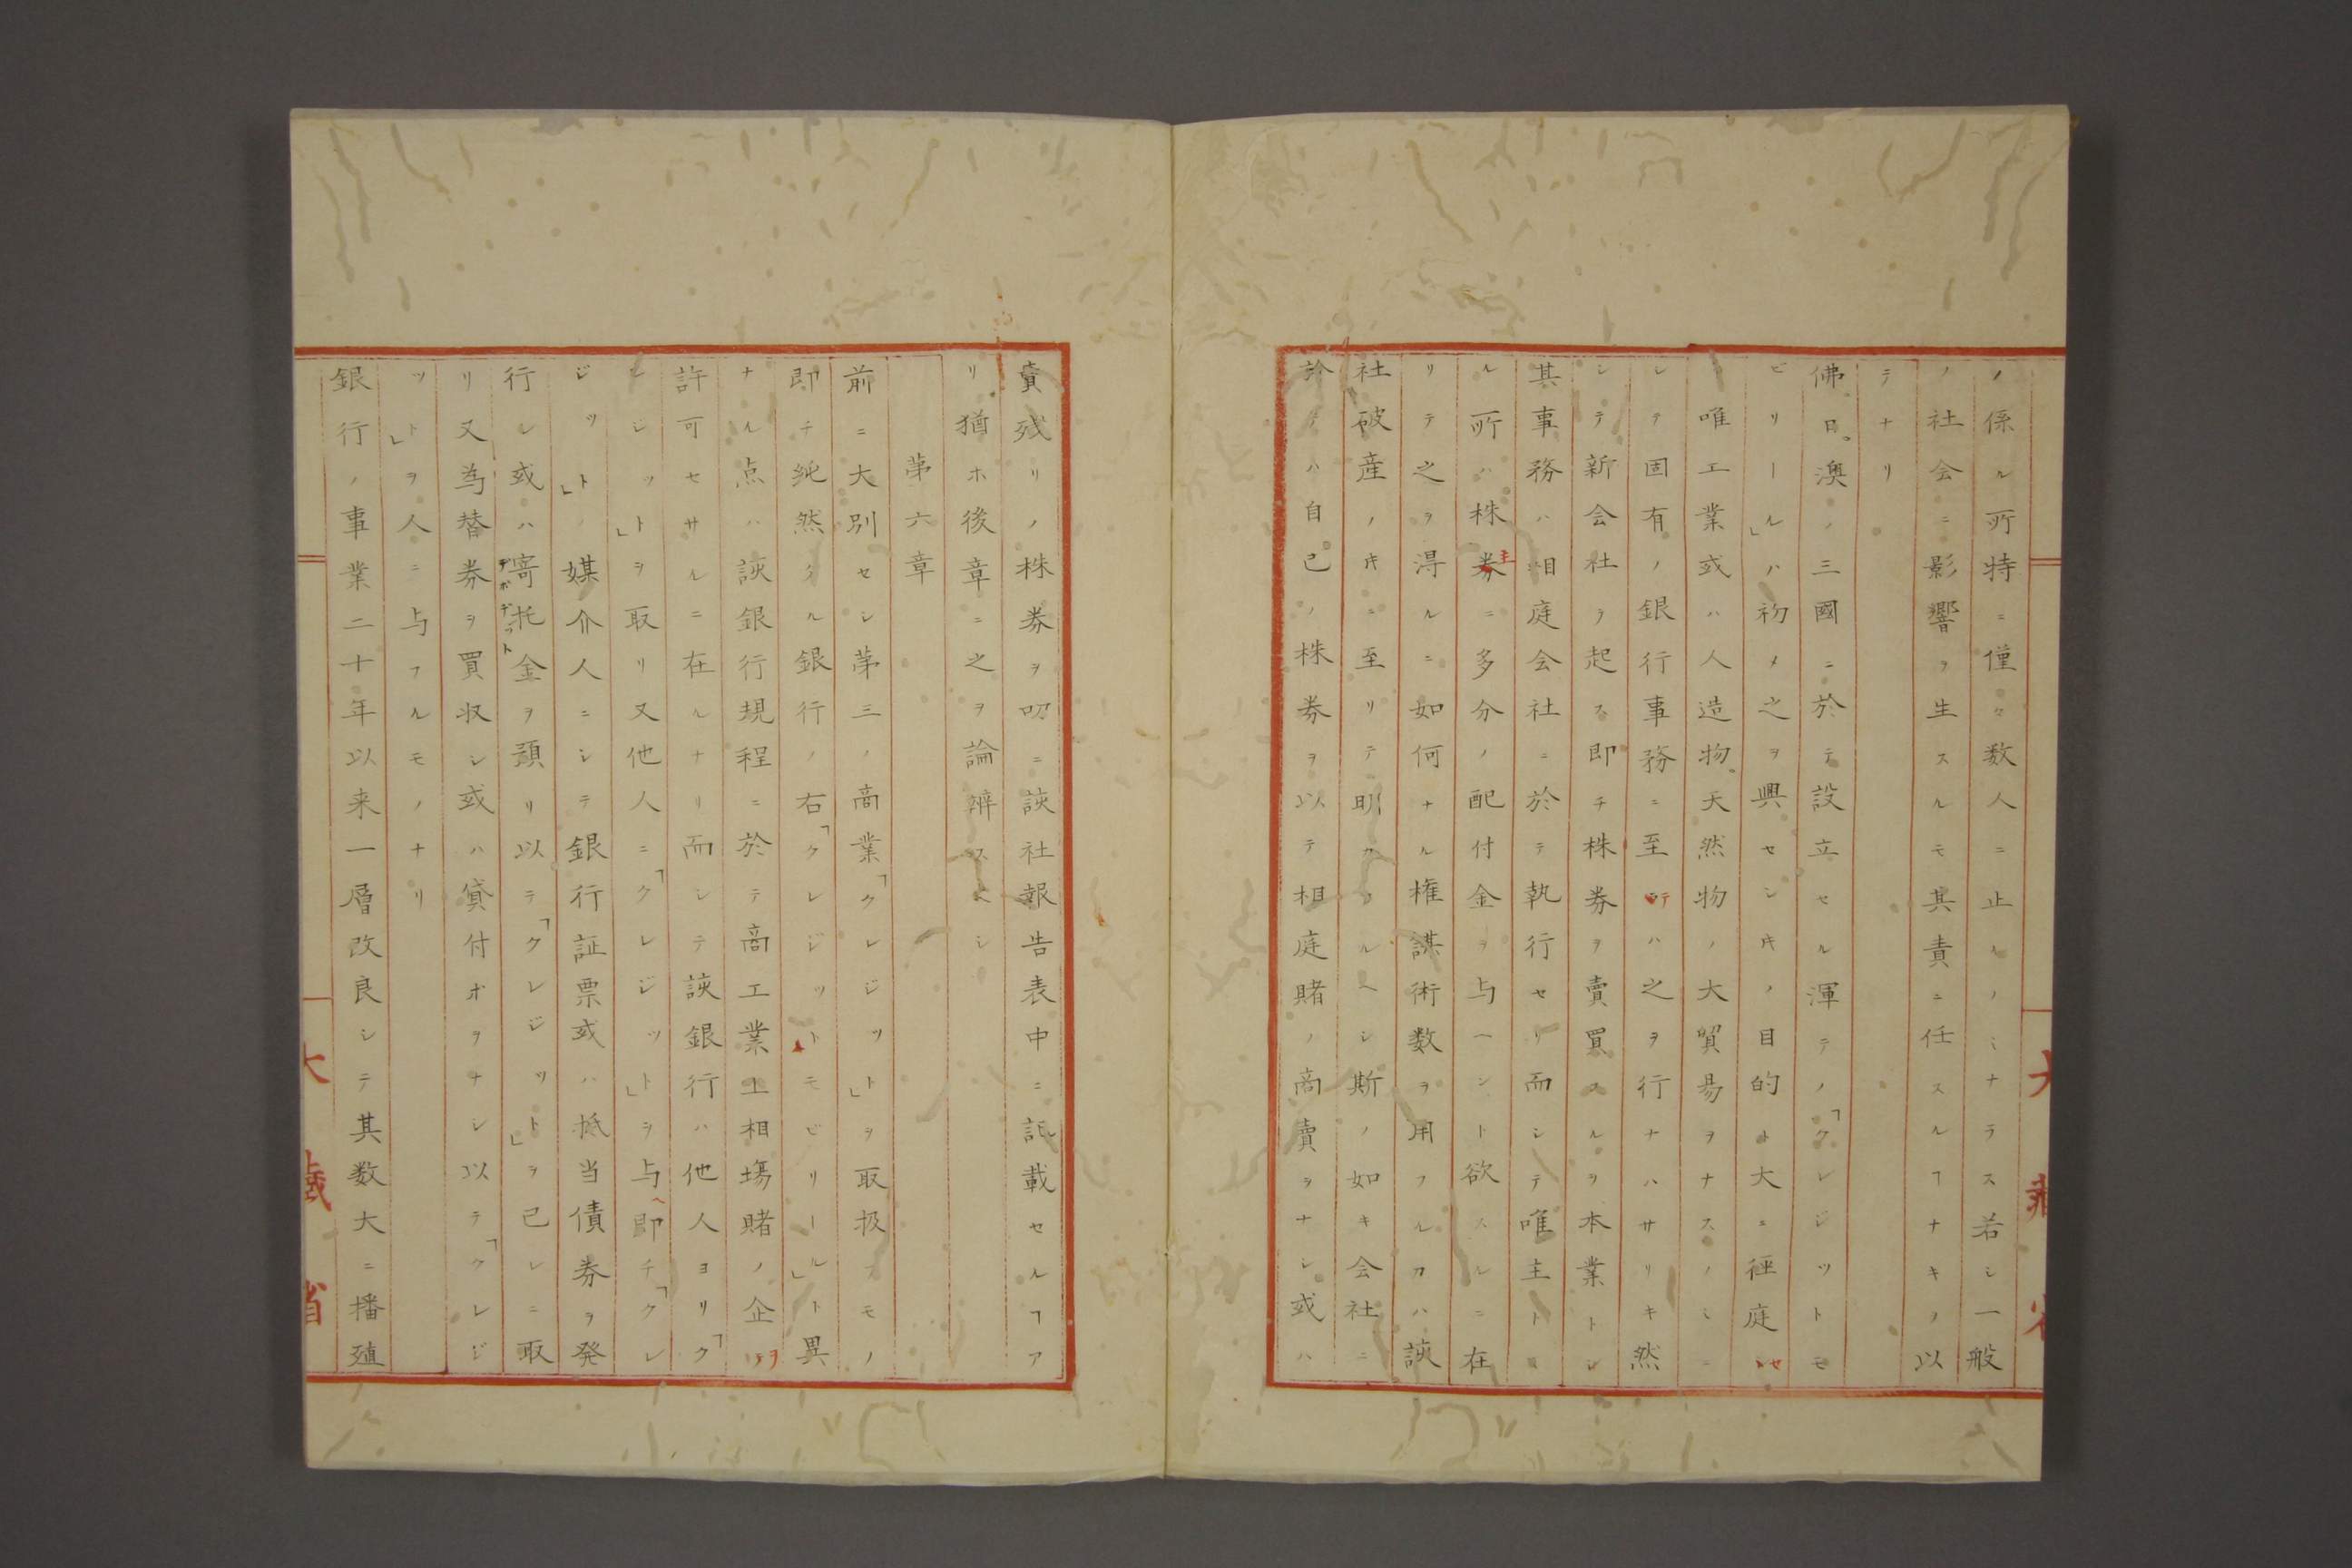 ノ係ル所特ニ僅々数人ニ止ルノミナラス若シ一般
ノ社会ニ影響ヲ生スルモ其責ニ任スルヿナキノ以
テナリ
佛日澳ノ三國ニ於テ設立セル渾テノ「クレジットモ
ビリール」ハ初メ之ヲ興セシ𬼀ノ目的ヨ大ニ徑庭セ
唯工業或ハ人造物天然物ノ大貿易ヲナスノミニ
シテ固有ノ銀行事務ニ至テハ之ヲ行ナハサリキ然
シテ新会社ヲ起ス即チ株券ヲ賣買スルヲ本業トシ
其事務ハ相庭会社ニ於テ執行セリ而シテ唯主トス
ル所ハ株主ニ多分ノ配付金ヲ与ヘント欲スルニ在
リテ之ヲ得ルニ如何ナル権謀術数ヲ用フルカハ該
社破産ノ𬼀ニ至リテ明カナルヘシ斯ノ如キ会社ニ
於テハ自己ノ株券ヲ以テ相庭賭ノ商賣ヲナシ或ハ
賣残リノ株券ヲ叨ニ該社報告表中ニ記載セルヿア
リ猶ホ後章ニ之ヲ論辨スヘシ
第六章
前ニ大別セシ第三ノ商業「クレジット」ヲ取扱フモノ
即チ純然タル銀行ノ右「クレジットモビリール」ト異
ナル点ハ該銀行規程ニ於テ商工業上相場賭ノ企ヲ
許可セサルニ在ルナリ而シテ該銀行ハ他人ヨリ「ク
レジット」ヲ取リ又他人ニ「クレジット」ヲ与ヘ即チ「クレ
ジット」ノ媒介人ニシテ銀行証票或ハ抵当債券ヲ発
行シ或ハ寄托金ヲ預リ以テ「クレジット」ヲ己レニ取
リ又為替券ヲ買収シ或ハ貸付ホヲナシ以テ「クレジ
ット」ヲ人ニ与フルモノナリ
銀行ノ事業二十年以来一層改良シテ其数大ニ播殖
大藏省